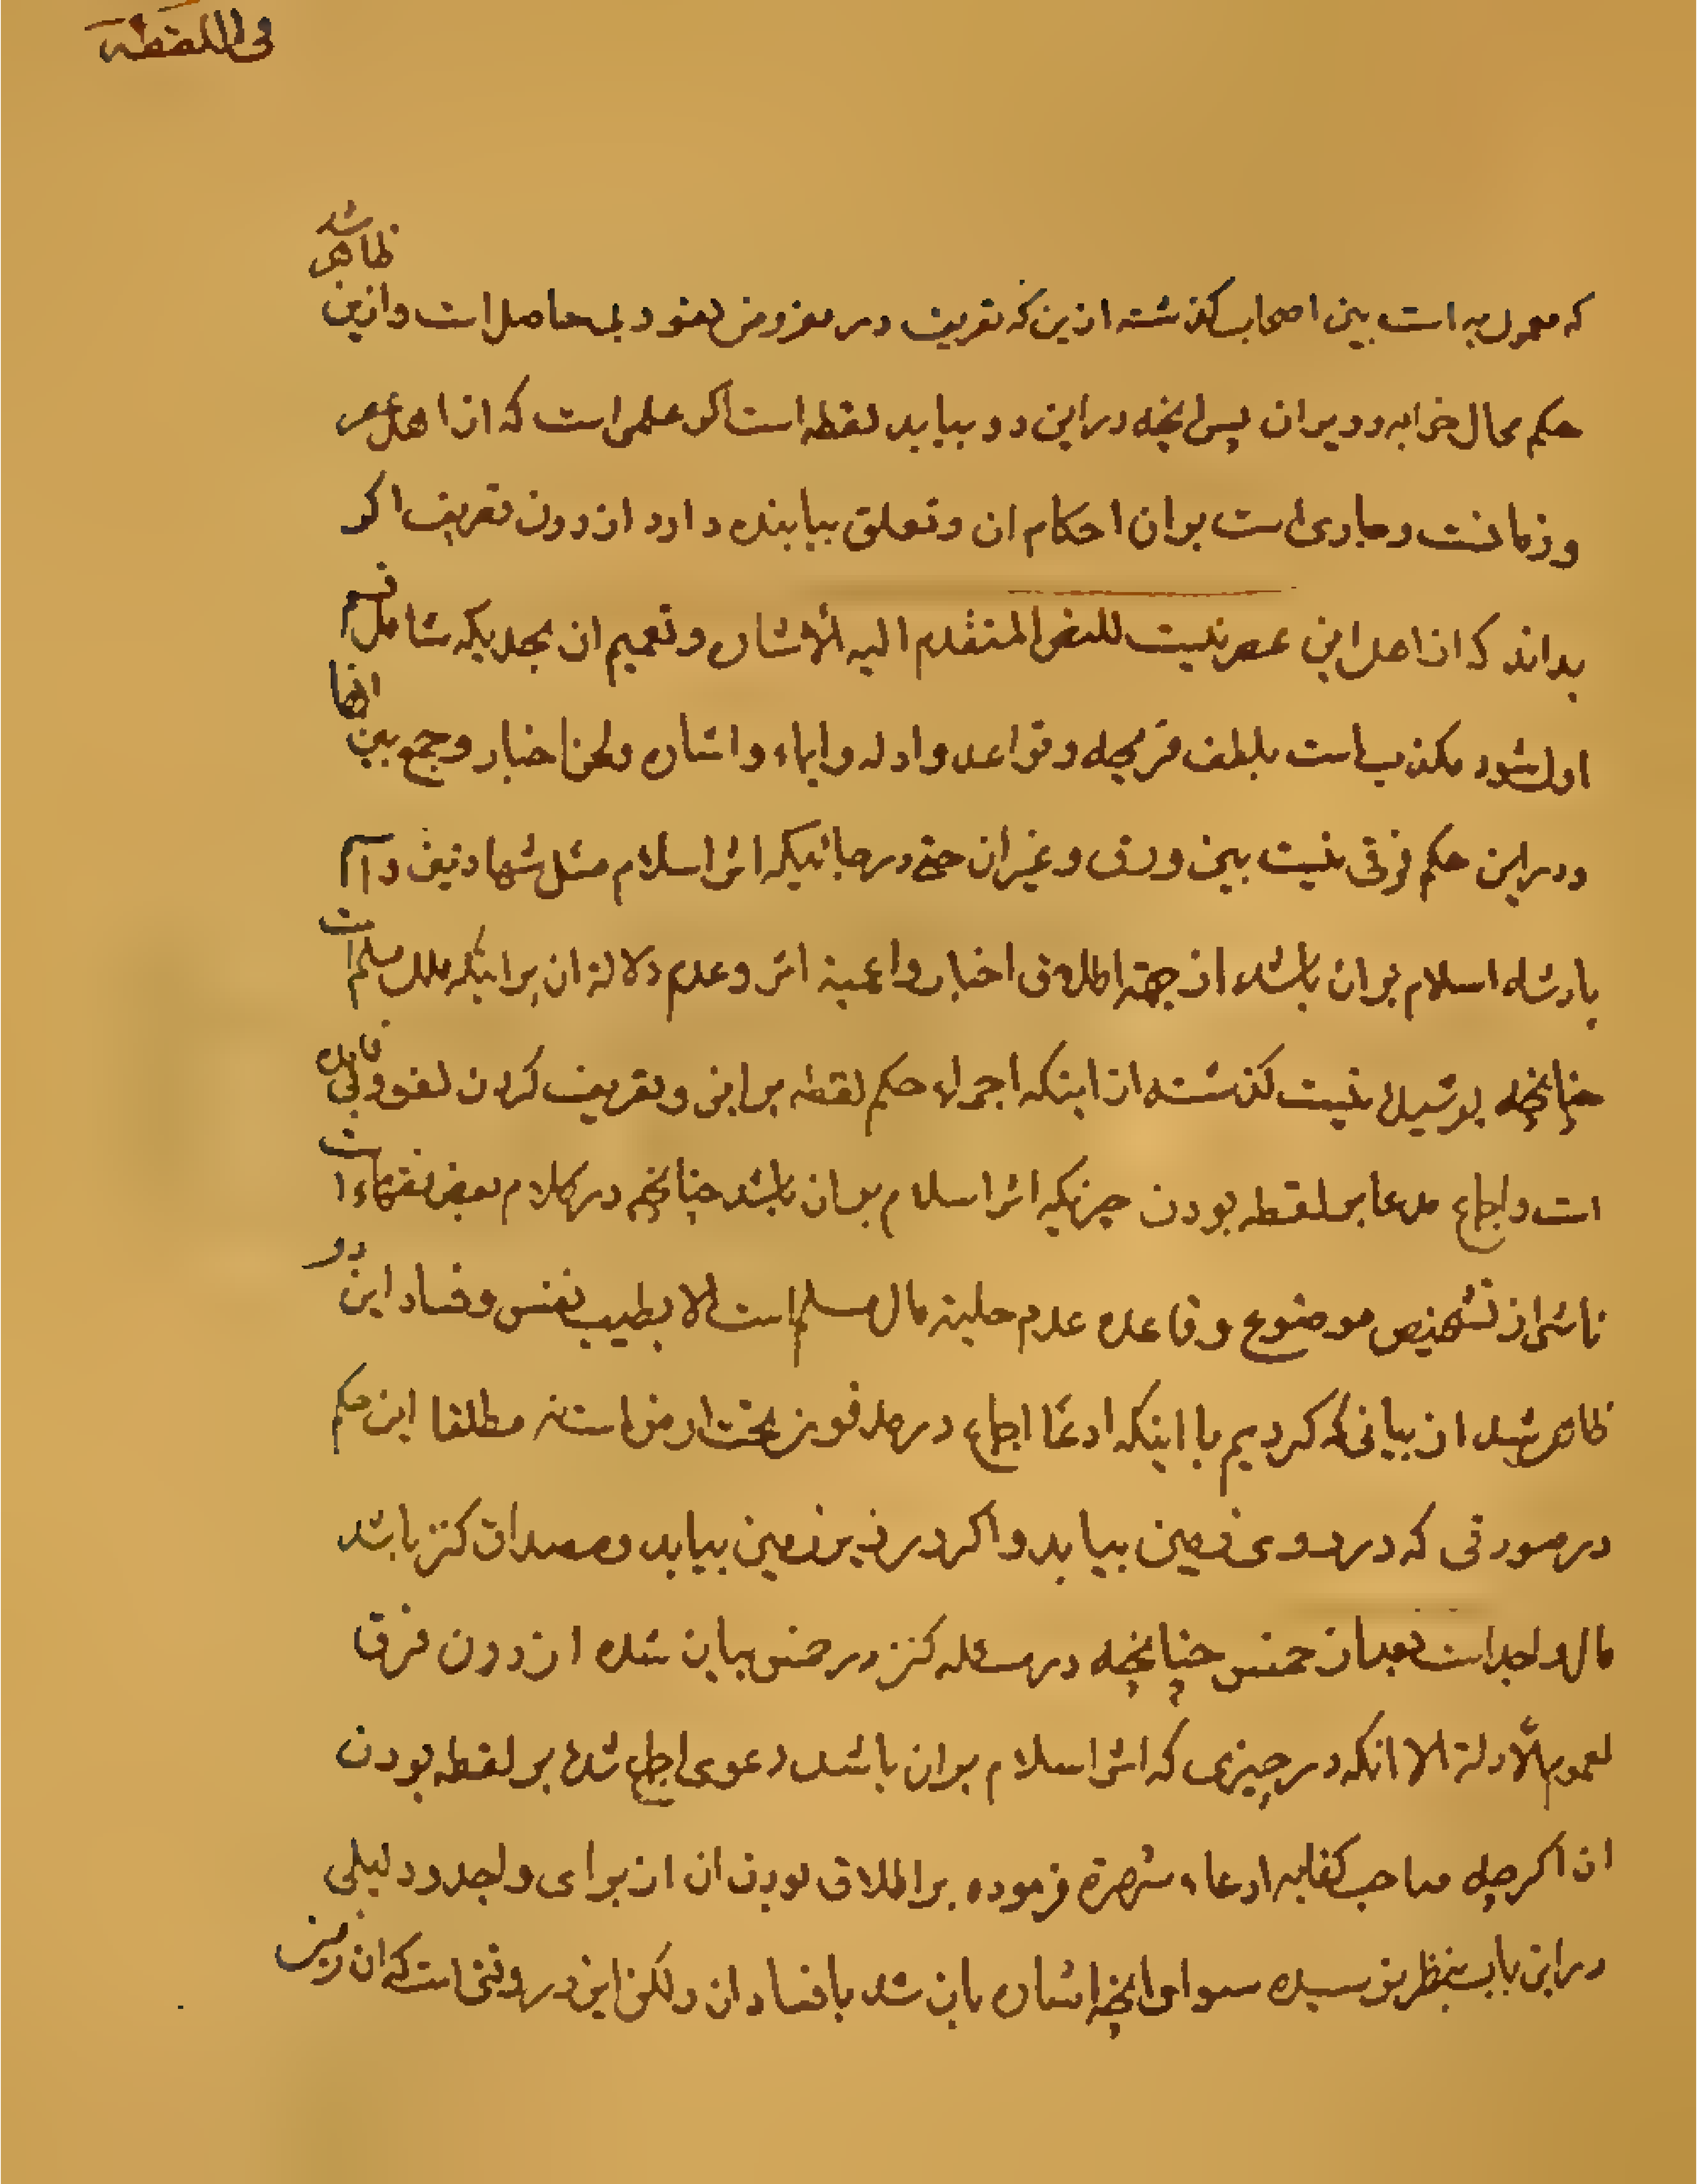 فی اللقطة
که معمول به است بین اصحاب کذشته ازین که تعریف در مفروض لغو و بی حاصل است و ازین ظاهر شد
حکم محال خرابه و ویران پس انچه در این دو بیابد لقطه است اکر علم است که از اهل عصر
و زمانست و جاری است بران احکام ان و تعلق بیابنده دارد از دون تعریف اکر
بداند که از اهل این عصر نیست للنص المتقدم الیه الأشاره و تعمیم ان بحدیکه شامل قسم
اول شود مکذب است بلطف قریحه و قواعد و ادله و ایماء و اشاره و لحن اخبار و جمع بین انها
و در این حکم فرقی نیست بین ورق و غیر ان حتی در جائیکه اثر اسلام مثل شهادتین و اسم
پادشاه اسلام بران باشد از جهة اطلاق اخبار و اعمیة اثر و عدم دلالة ان بر اینکه ملک مسلم است
چنانچه پوشیده نیست کذشته از اینکه اجراء حکم لقطه بر این و تعریف کردن لغو و بی فایده
است و اجماع مدعا بر لقطه بودن چیزیکه اثر اسلام بر ان باشد چنانچه در کلام بعض فقهاء است
ناشی از تشخیص موضوع و قاعده عدم حلیة مال مسلم است الا بطیب نفس و فساد این دو
ظاهر شد از بیانی که کردیم با اینکه ادعا اجماع در مدفون تحت ارض است نه مطلقا این حکم
در صورتی که در روی زمین بیابد و اکر در زیر زمین بیابد و مصداق کنز باشد
مال واجد است بعد از خمس چنانچه در مسئله کنز در خمس بیان شده از دون فرق
لعموم الأدلة الا انکه در چیزی که اثر اسلام بران باشد دعوی اجماع شده بر لقطه بودن
ان اکر چه صاحب کفایه ادعاء شهرة فرموده بر اطلاق بودن ان از برای واجد و دلیلی
در این باب بنظر نرسیده سوای انچه اشاره بان شد با فساد ان و لکن این در وقتی است که ان زمین